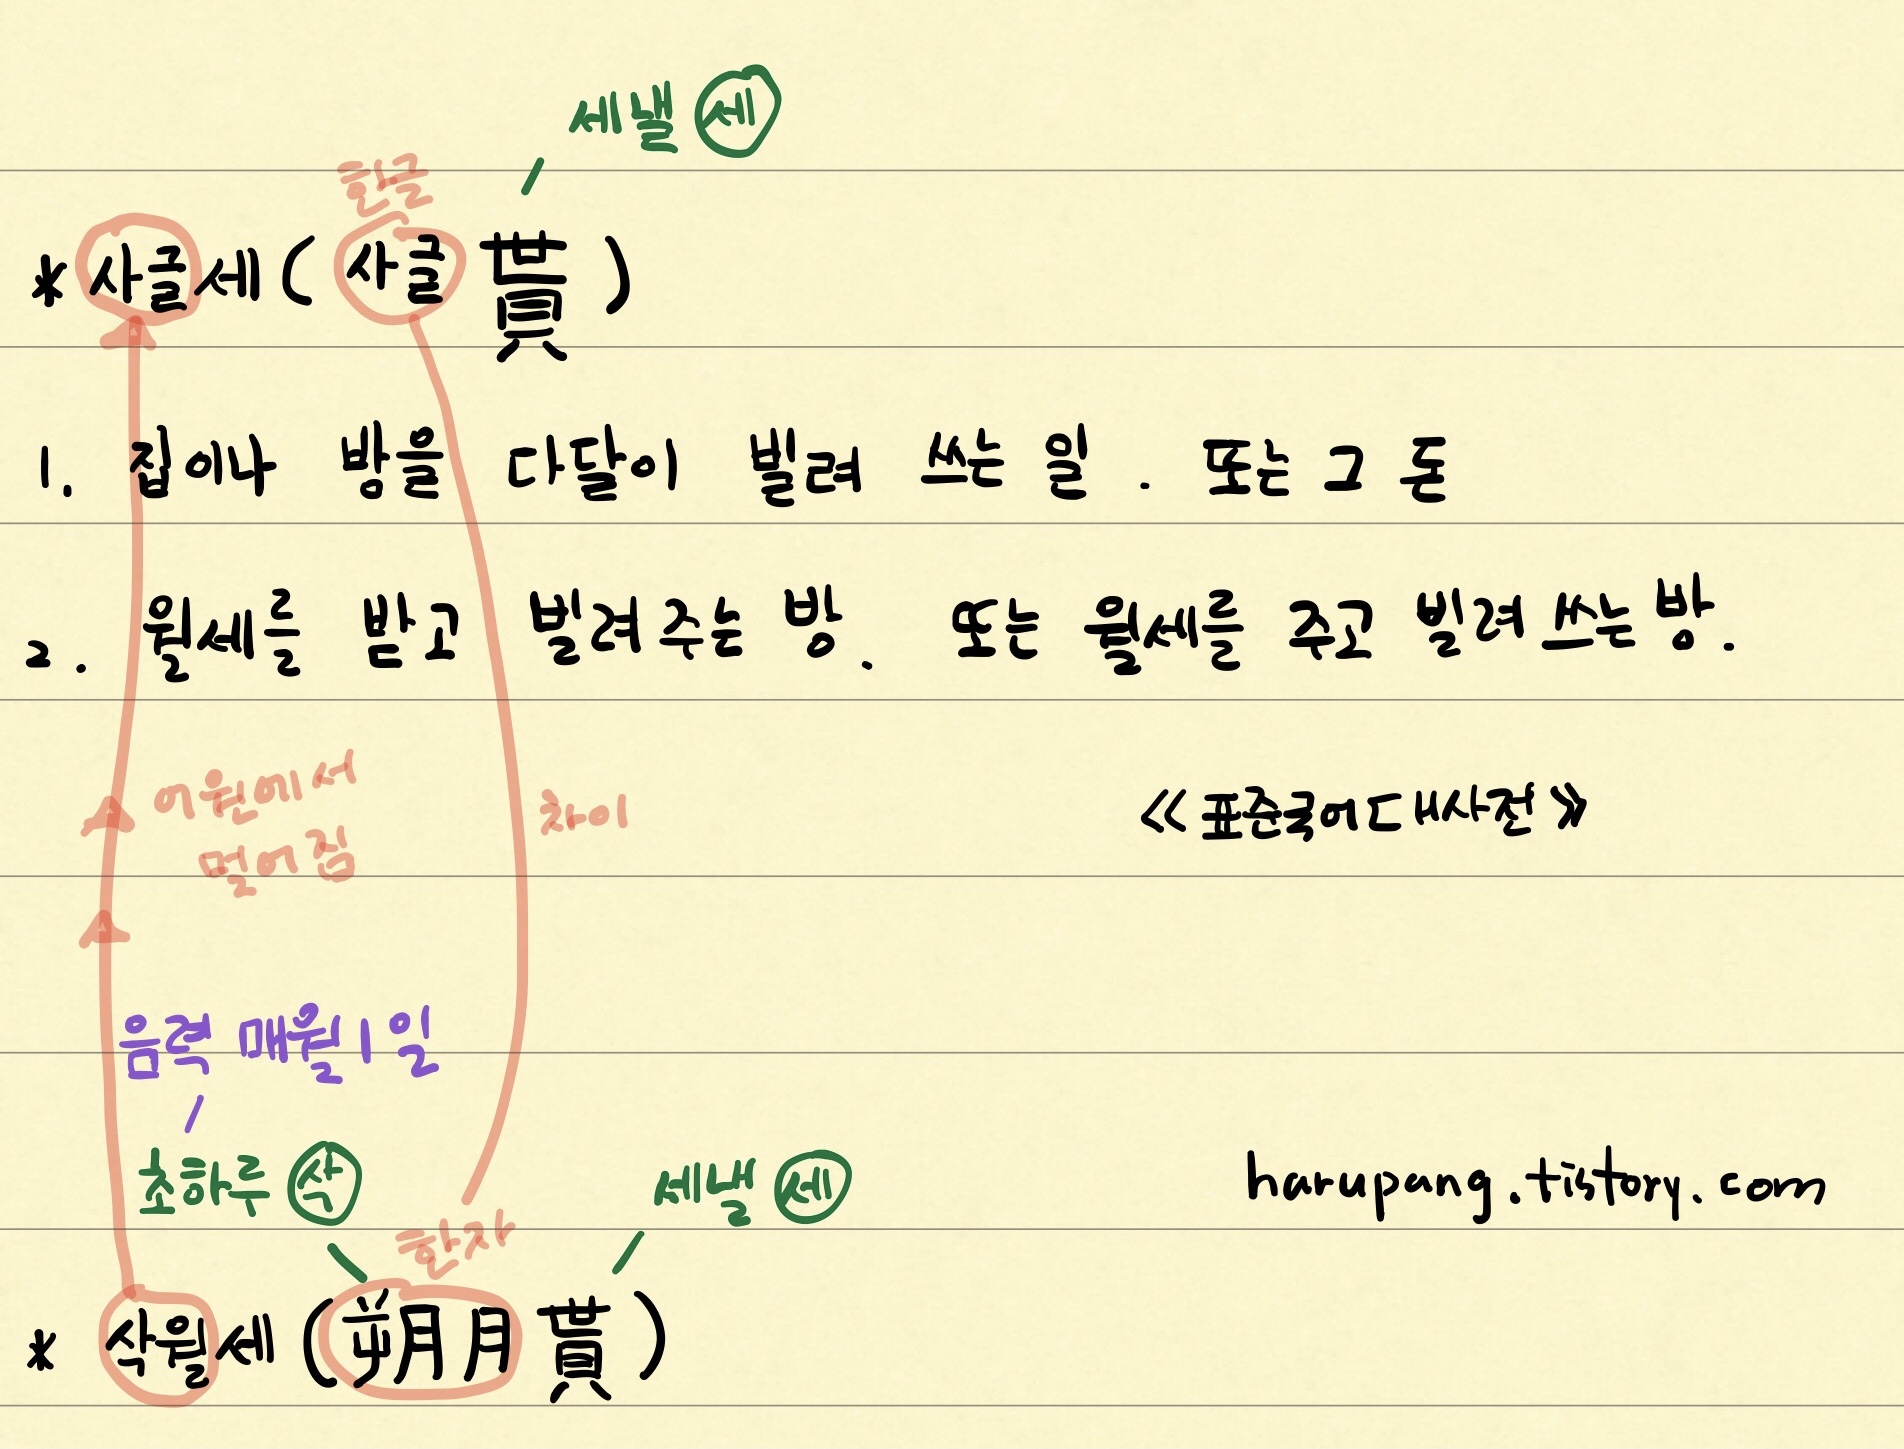 세낼 세
한글
* 사글세(사글貰)
1. 집이나 방을 다달이 빌려 쓰는 일. 또는 그 돈
2. 월세를 받고 빌려주는 방. 또는 월세를 주고 빌려 쓰는 방.
어원에서
멀어짐
차이
《표준국어대사전》
음력 매월 1일
초하루 삭
세낼 세
harupang.tistory.com
한자
* 삭월세(朔月貰)